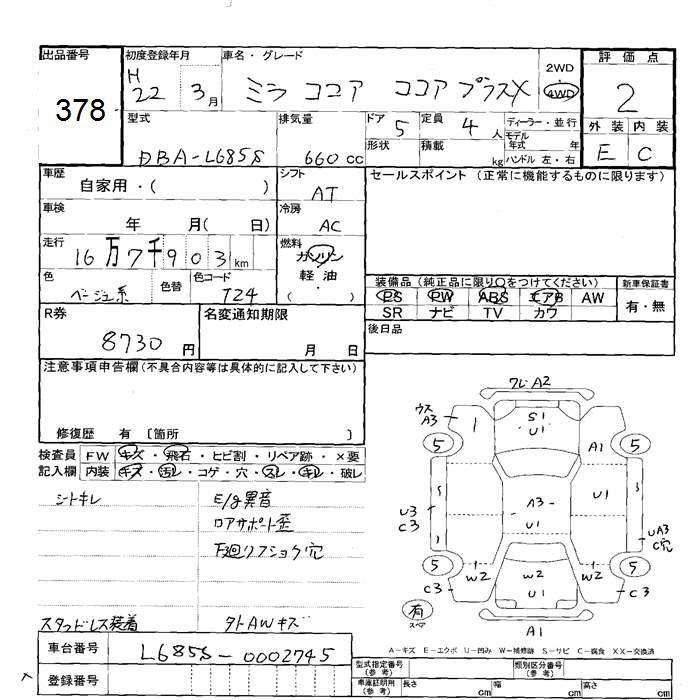 出品番号 初度登録年月 車名・グレード 2WD 評価点
378 H 22 3月 ミラ ココア ココア プラスX 4WD 2
型式 排気量 ドア 5 定員 4人 ディーラー・並行 外装 内装
DBA-L685S 660cc 形状 積載 kg モデル年式 年 ハンドル 左・右 E C
車歴 自家用・( ) シフト AT セールスポイント (正常に機能するものに限ります)
車検 年 月( 日) 冷房 AC
走行 16万7千903km 燃料 ガソリン
軽油
色 ベージュ系 色替 色コード T24 ( )
装備品 (純正品に限り○をつけてください) 新車保証書
PS PW ABS エアB AW 有・無
SR ナビ TV カワ
R券 8730円 名変通知期限 月 日 後日品
注意事項申告欄(不具合内容等は具体的に記入して下さい)
修復歴 有 〔箇所 〕
検査員 FW キズ・飛石・ヒビ割・リペア跡・×要
記入欄 内装 キズ・汚レ・コゲ・穴・スレ・キレ・破レ
シートキレ E/g異音
ロアサポート歪
下廻リアショク穴
スタッドレス装着 タトAWキズ
ワレ A2
ウス A3 1 S1 U1
5 A1 5
U3 C3 A3 U1 U1 UA3 C穴
5 W2 W2 U1 W2 5
C3 C3
有 スペア A1
A-キズ E-エクボ U-凹み W-補修跡 S-サビ C-腐食 XX-交換済
車台番号 L685S-0002745
登録番号
型式指定番号(参考) 類別区分番号(参考)
車庫証明用(参考) 長さ cm 幅 cm 高さ cm